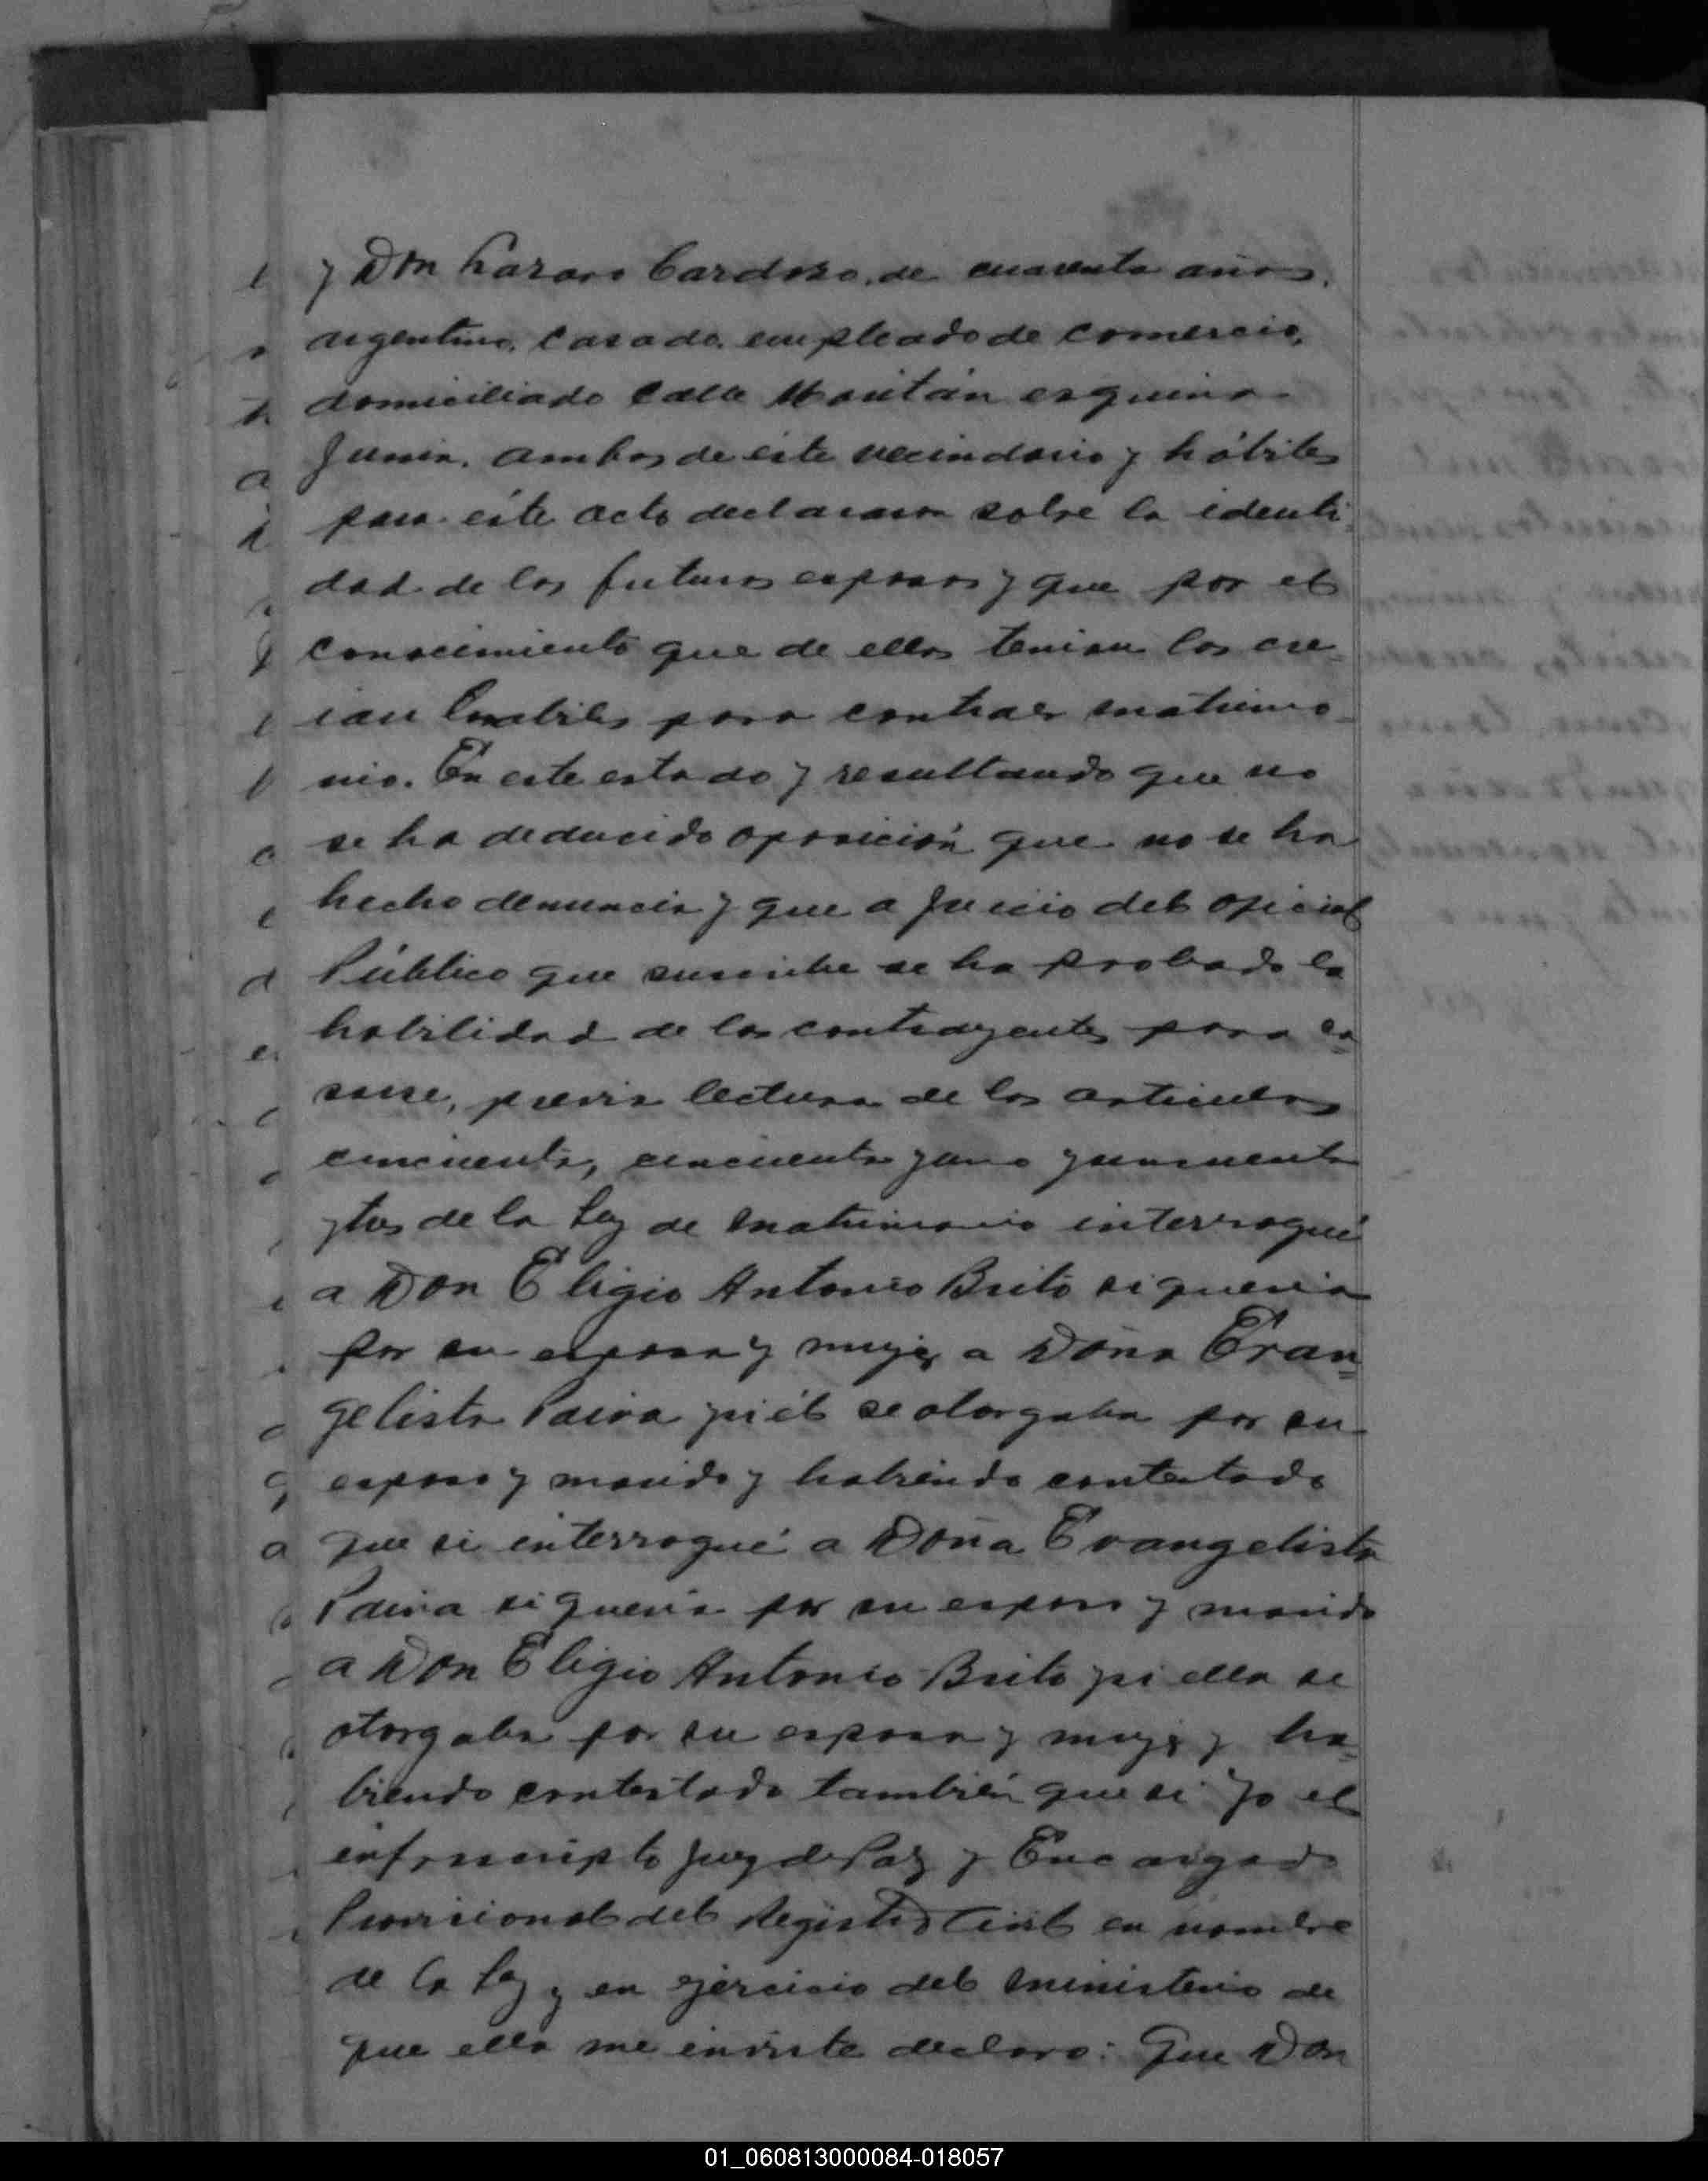 y Don Lazaro Cardozo, de cuarenta años,
argentino, casado, empleado de comercio,
domiciliado calle esquina
Junin, ambos de este vecindario y hábiles
para éste acto declararon sobre la identi
dad de los futuros esposos y que por el
conocimiento que de ellos tenian los cre-
ian habiles para contraer matrimo-
nio. En este estado y resultando que no
se ha deducido oposición que no se ha
hecho denuncia y que a juicio del oficial
Público que suscribe se ha probado la
habilidad de los contrayentes para ca-
sarse, previa lectura de los articulos
cincuenta, cincuenta y uno y cincuenta
y tres de la Ley de Matrimonio interrogué
a Don Eligio Antonio Brito si queria
por su esposa y mujer a Doña Evan=
gelista Paiva y si él se otorgaba por su
esposo y marido y habiendo contestado
que si interrogué a Doña Evangelista
Paiva si queria por su esposo y marido
a Don Eligio Antonio Brito y si ella se
otorgaba por su esposa y mujer y ha-
biendo contestado también que si yo el
infrascripto Juez de Paz y Encargado
Provisional del Registro Civil en nombre
de la Ley y en ejercicio del ministerio de
que ella me inviste declaro: Que Don
01_060813000084-018057